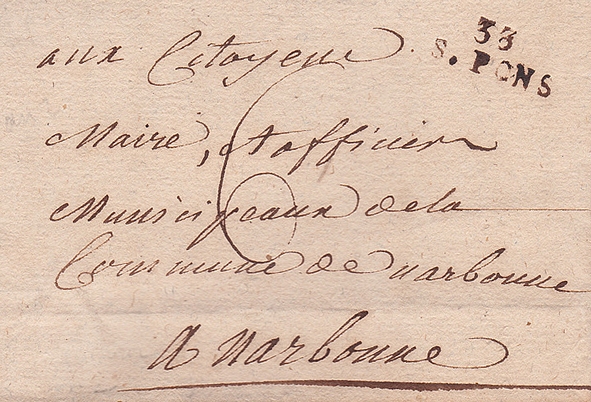 33
S. PONS
aux Citoyens
Maire, & officiers
Municipeaux de la
Commune de narbonne
a narbonne
6